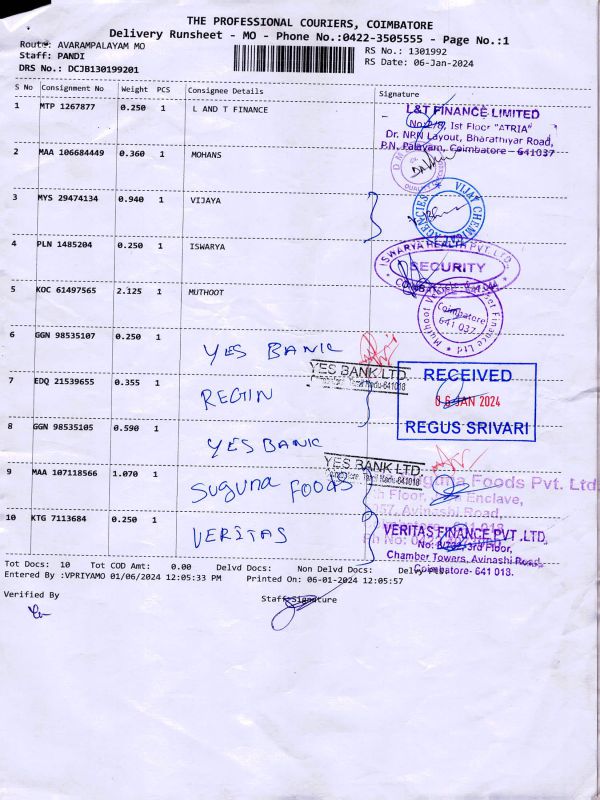 THE PROFESSIONAL COURIERS, COIMBATORE
Delivery Runsheet - MO - Phone No.:0422-3505555 - Page No.:1
Route: AVARAMPALAYAM MO
RS No.: 1301992
Staff: PANDI
RS Date: 06-Jan-2024
DRS No.: DCJB130199201
S No Consignment No Weight PCS Consignee Details Signature
1 MTP 1267877 0.250 1 L AND T FINANCE
L&T FINANCE LIMITED
Ist Floor "ATRIA"
Dr. NRN Layout, Bharathiyar Road,
P.N. Palayam, Coimbatore - 641037
2 MAA 106684449 0.360 1 MOHANS
3 MYS 29474134 0.940 1 VIJAYA
VIJAY CHEMI AGENCIES
4 PLN 1485204 0.250 1 ISWARYA
ISWARYA HEALTH PVT. LTD.
SECURITY
5 KOC 61497565 2.125 1 MUTHOOT
Muthoot Finance Ltd
Coimbatore
641 037
6 GGN 98535107 0.250 1 YES BANK
YES BANK LTD.
Tamil Nadu-641018
7 EDQ 21539655 0.355 1 REGIN
RECEIVED
06 JAN 2024
REGUS SRIVARI
8 GGN 98535105 0.590 1 YES BANK
YES BANK LTD.
Tamil Nadu-641018
9 MAA 107118566 1.070 1 Suguna FOODS
Suguna Foods Pvt. Ltd
Floor, Enclave,
Avinashi Road,
10 KTG 7113684 0.250 1 VERITAS
VERITAS FINANCE PVT .LTD,
3rd Floor,
Chamber Towers, Avinashi Road,
Coimbatore- 641 018.
Tot Docs: 10 Tot COD Amt: 0.00 Delvd Docs: Non Delvd Docs: Delvy Pct:
Entered By :VPRIYAMO 01/06/2024 12:05:33 PM Printed On: 06-01-2024 12:05:57
Verified By
Staff Signature